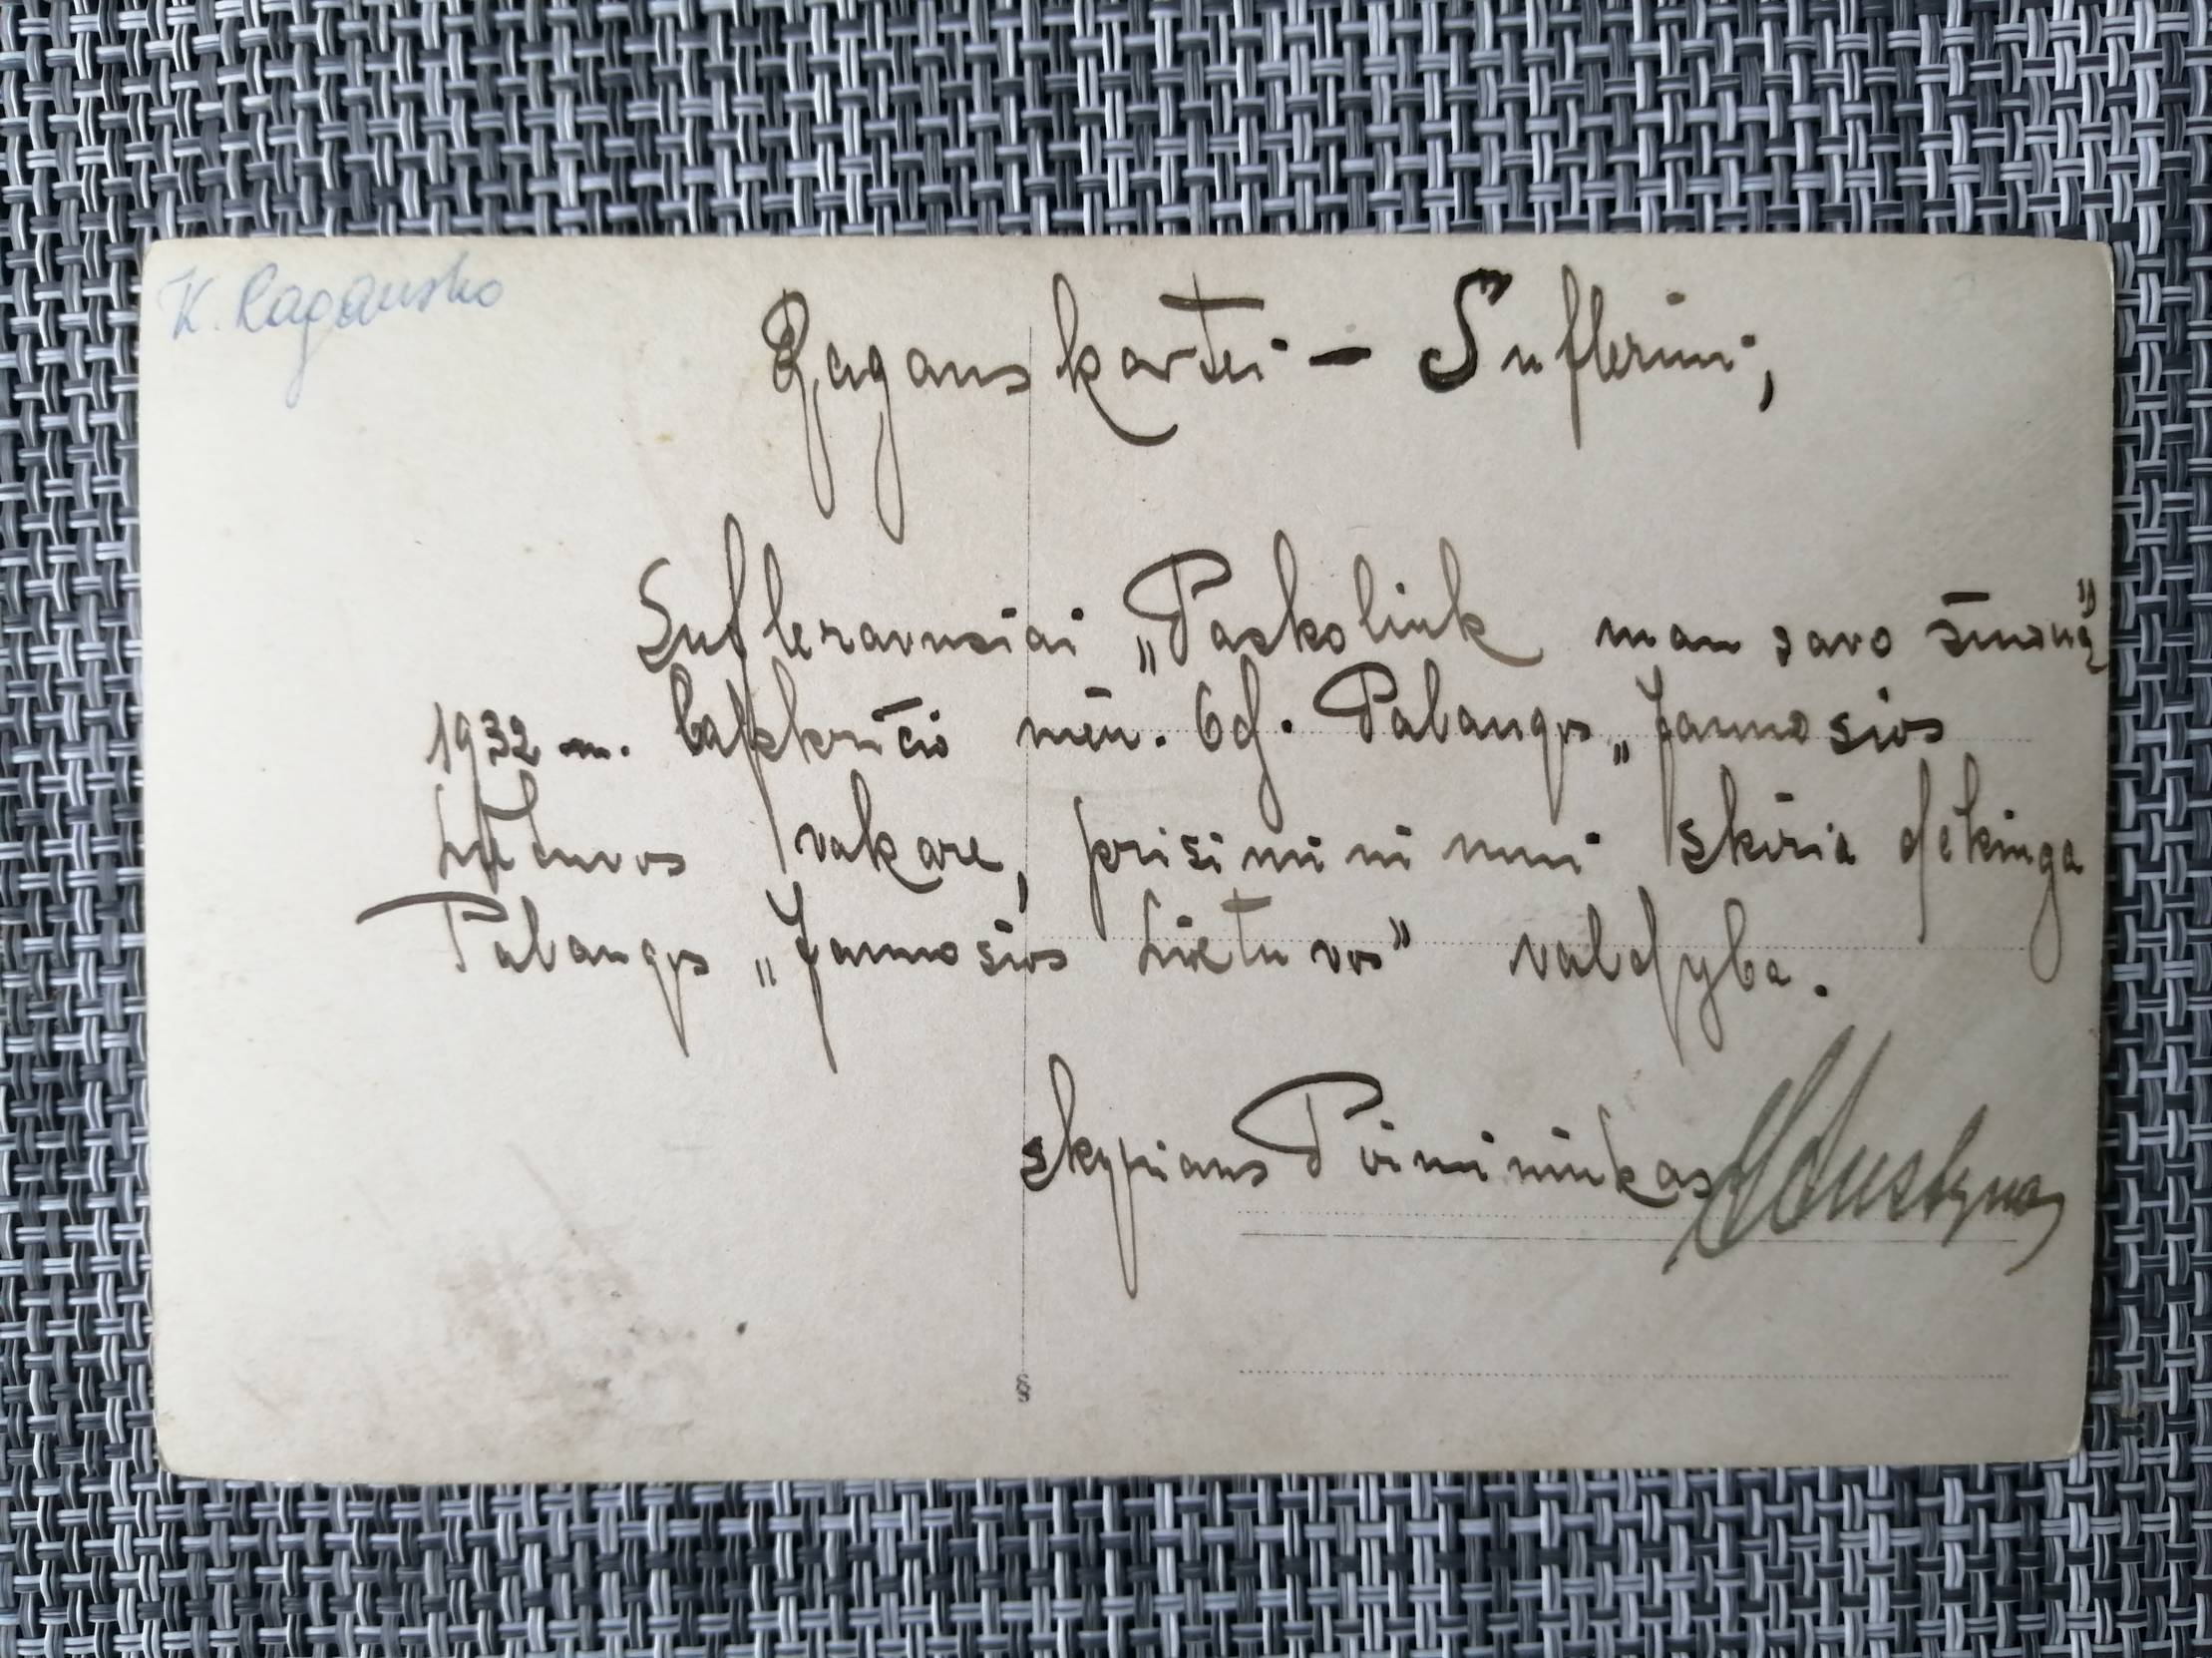 K. Ragausko
Ragauskartei – Sufleriui,
Sufleravusiai „Paskolink man savo žmoną"
1932 m. lapkričio mėn. 6 d. Palangos „Jaunosios
Lietuvos vakare, prisiminimui skiria dėkinga
Palangos „Jaunosios Lietuvos" valdyba.
skyriaus Pirmininkas